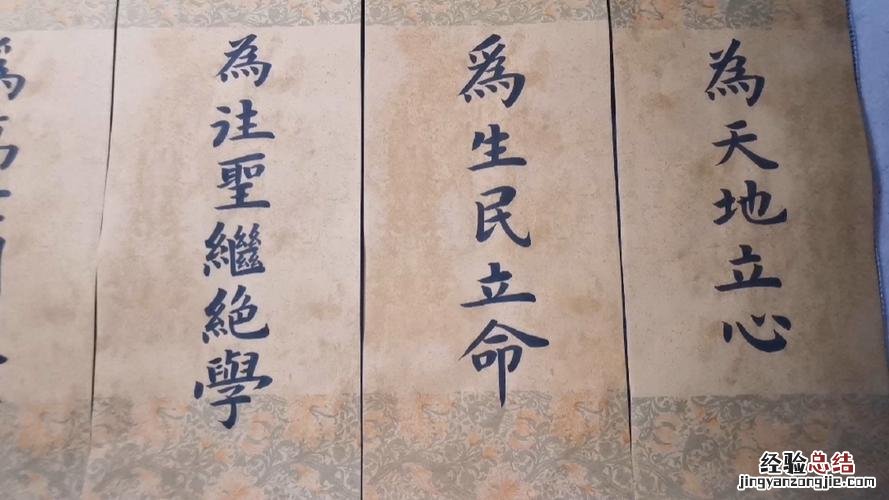 為天地立心
爲生民立命
為往聖繼絶學
经验总结
jingyanzongjie.com